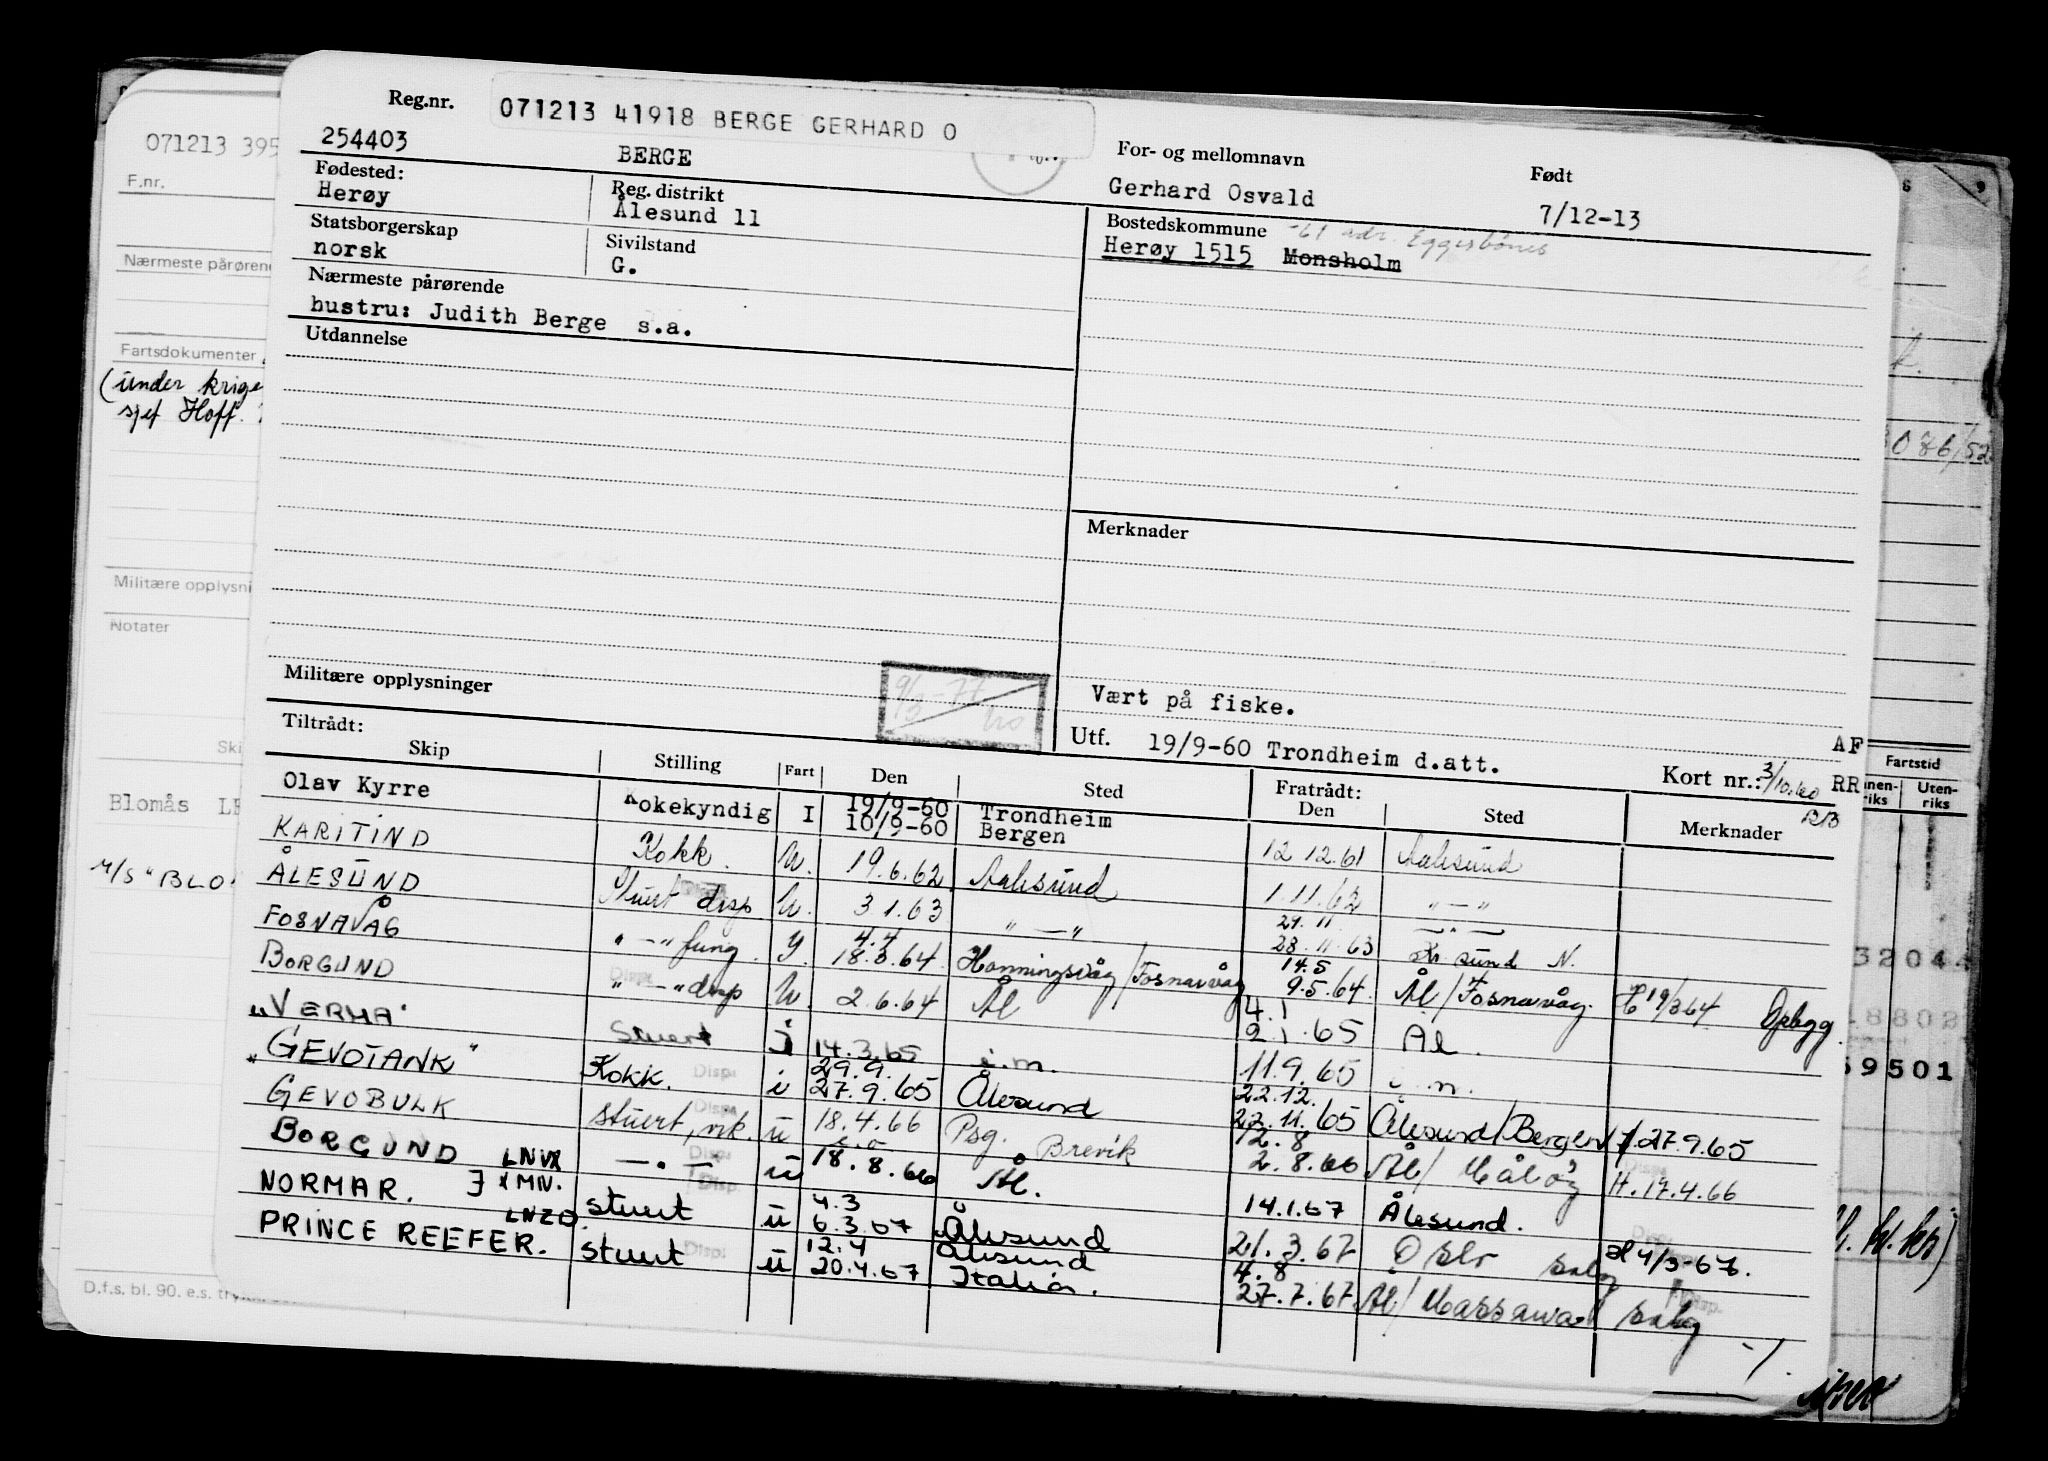 Reg.nr.
071213 41918 BERGE GERHARD O
254403
BERGE
For- og mellomnavn
Født
Gerhard Osvald
7/12-13
Fødested:
Herøy
Reg. distrikt
Ålesund 11
Bostedskommune
-61 adr. Eggesbönes
Herøy 1515 Monsholm
Statsborgerskap
norsk
Sivilstand
G.
Nærmeste pårørende
hustru: Judith Berge s.a.
Utdannelse
Merknader
Militære opplysninger
9/3-77
Vært på fiske.
Utf. 19/9-60 Trondheim d.att.
AF
Kort nr.: 3/10.60 RR
Tiltrådt:
Skip Stilling Fart Den Sted Fratrådt: Den Sted Merknader
Olav Kyrre Kokekyndig I 19/9-60 Trondheim
10/9-60 Bergen 12 12.61 Aalesund
KARITIND Kokk. U. 19.6.62 Aalesund 1.11.62 " — "
ÅLESUND Stuert disp U. 3 1.63 " — " 29.11
28.11.63 Kr.sund N.
FOSNAVÅG " — " fung. 4.4
18.3.64 Honningsvåg/Fosnavåg 14.5
9.5.64 Ål/Fosnavåg. H 19/3 64 Opbygg.
BORGUND " — " disp U. 2.6.64 Ål 4.1
9.1.65 Ål.
"VERMA" Stuert i 14.3.65 i.m. 11.9.65 i.m.
"GEVOTANK" Kokk. i 29.9.
27.9.65 Ålesund 22.12.
22.11.65 Ålesund/Bergen 27.9.65
GEVOBULK stuert, vik. u 18.4.66 Psg. Brevik 12.8
2.8.66 Ål/Måløy H. 17.4.66
BORGUND LNVX — " — u 18.8.66 Ål. 14.1.67 Ålesund.
NORMAR. LMN. stuert u 4.3
6.3.67 Ålesund 21.3.67 Oslo salg H 4/3-67.
PRINCE REEFER. LNZO stuert u 12.4 Ålesund
20.4.67 Italia. 4.8
27.7.67 Ål/Massawa salg
071213 395
F.nr.
Nærmeste pårørend
Fartsdokumenter
(under krige
sjef Hoff.
Militære opplysni
Notater
Ski
Blomås LE
M/S "BLO
D.f.s. bl. 90. e.s. tryk
086/52
Fartstid
nen-
riks
Uten-
riks
3204
1880
59501